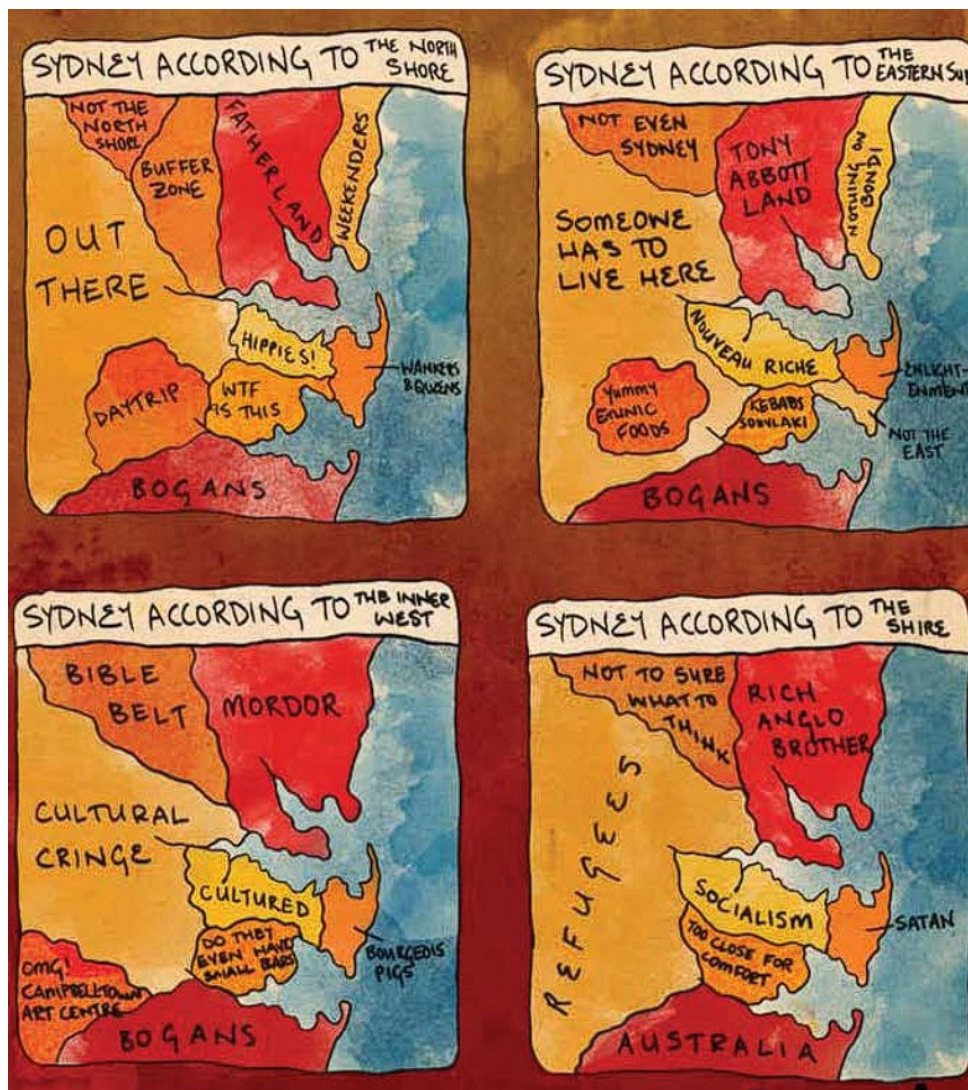 SYDNEY ACCORDING TO THE NORTH
SHORE
NOT THE
NORTH
SHORE
BUFFER
ZONE
FATHERLAND
WEEKENDERS
OUT
THERE
HIPPIES!
WANKERS
& QUEENS
DAYTRIP
WTF
IS THIS
BOGANS
SYDNEY ACCORDING TO THE
EASTERN SU
NOT EVEN
SYDNEY
TONY
ABBOTT
LAND
NOTHING ON
BONDI
SOMEONE
HAS TO
LIVE HERE
NOUVEAU RICHE
ENLIGHT-
ENMENT
YUMMY
ETHNIC
FOODS
KEBABS
SOUVLAKI
NOT THE
EAST
BOGANS
SYDNEY ACCORDING TO THE INNER
WEST
BIBLE
BELT
MORDOR
CULTURAL
CRINGE
CULTURED
DO THEY
EVEN HAVE
SMALL BARS
BOURGEOIS
PIGS
OMG!
CAMPBELLTOWN
ART CENTRE
BOGANS
SYDNEY ACCORDING TO THE
SHIRE
NOT TO SURE
WHAT TO
THINK
RICH
ANGLO
BROTHER
REFUGEES
SOCIALISM
SATAN
TOO CLOSE FOR
COMFORT
AUSTRALIA